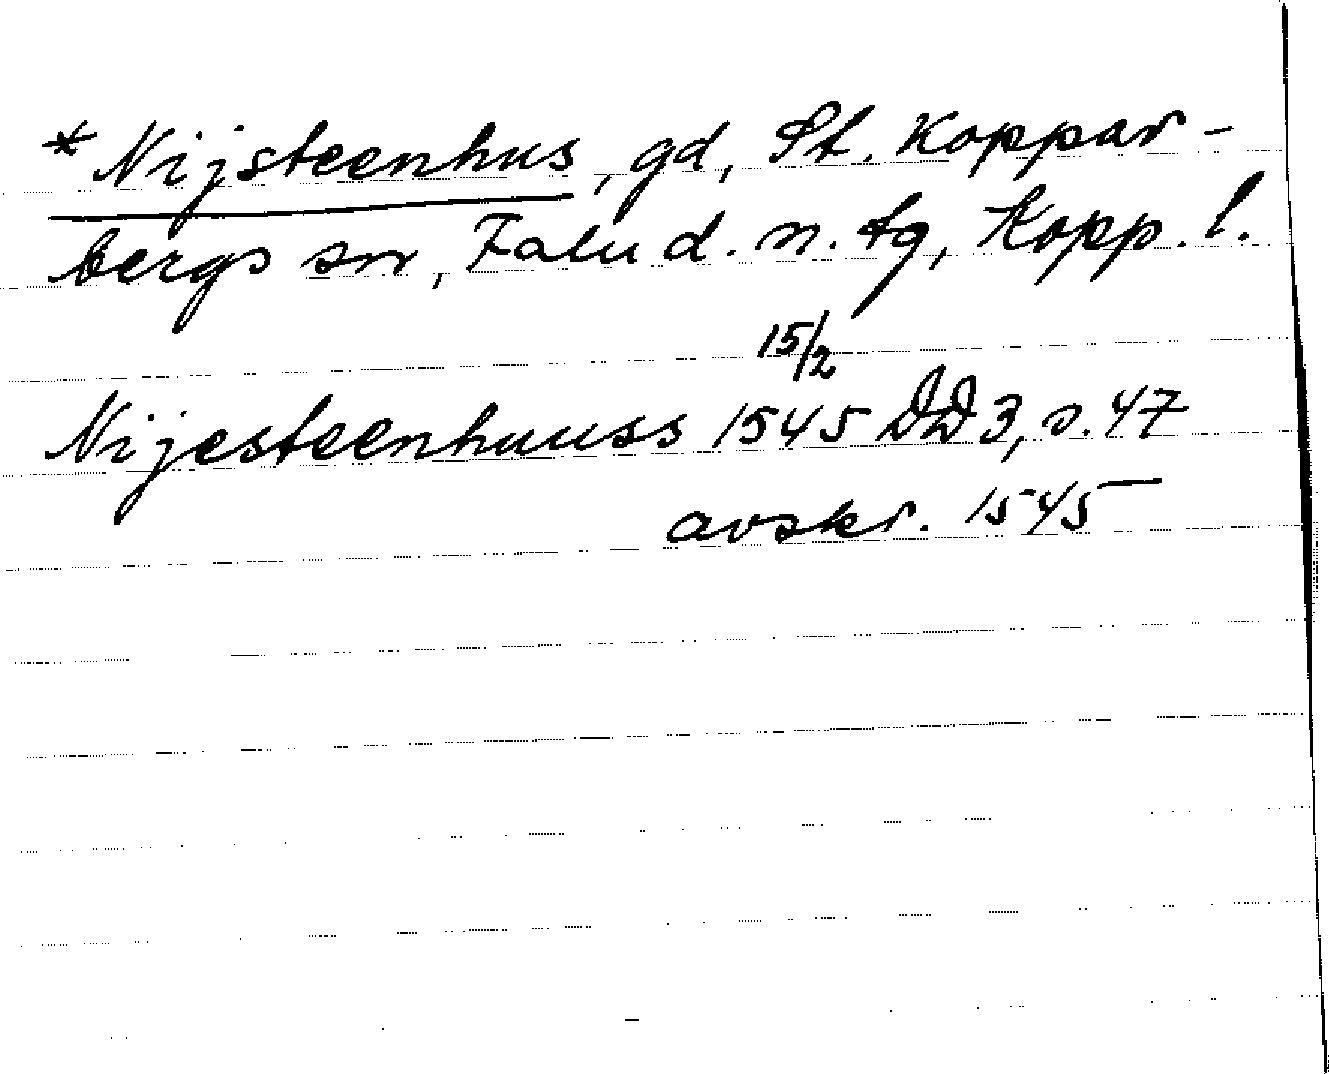 *Nijsteenhus, gd, St. Koppar-
bergs sn, Falu d. n. tg, Kopp. l.
15/2
Nijesteenhuuss 1545 DD 3, s. 47
avskr. 1545